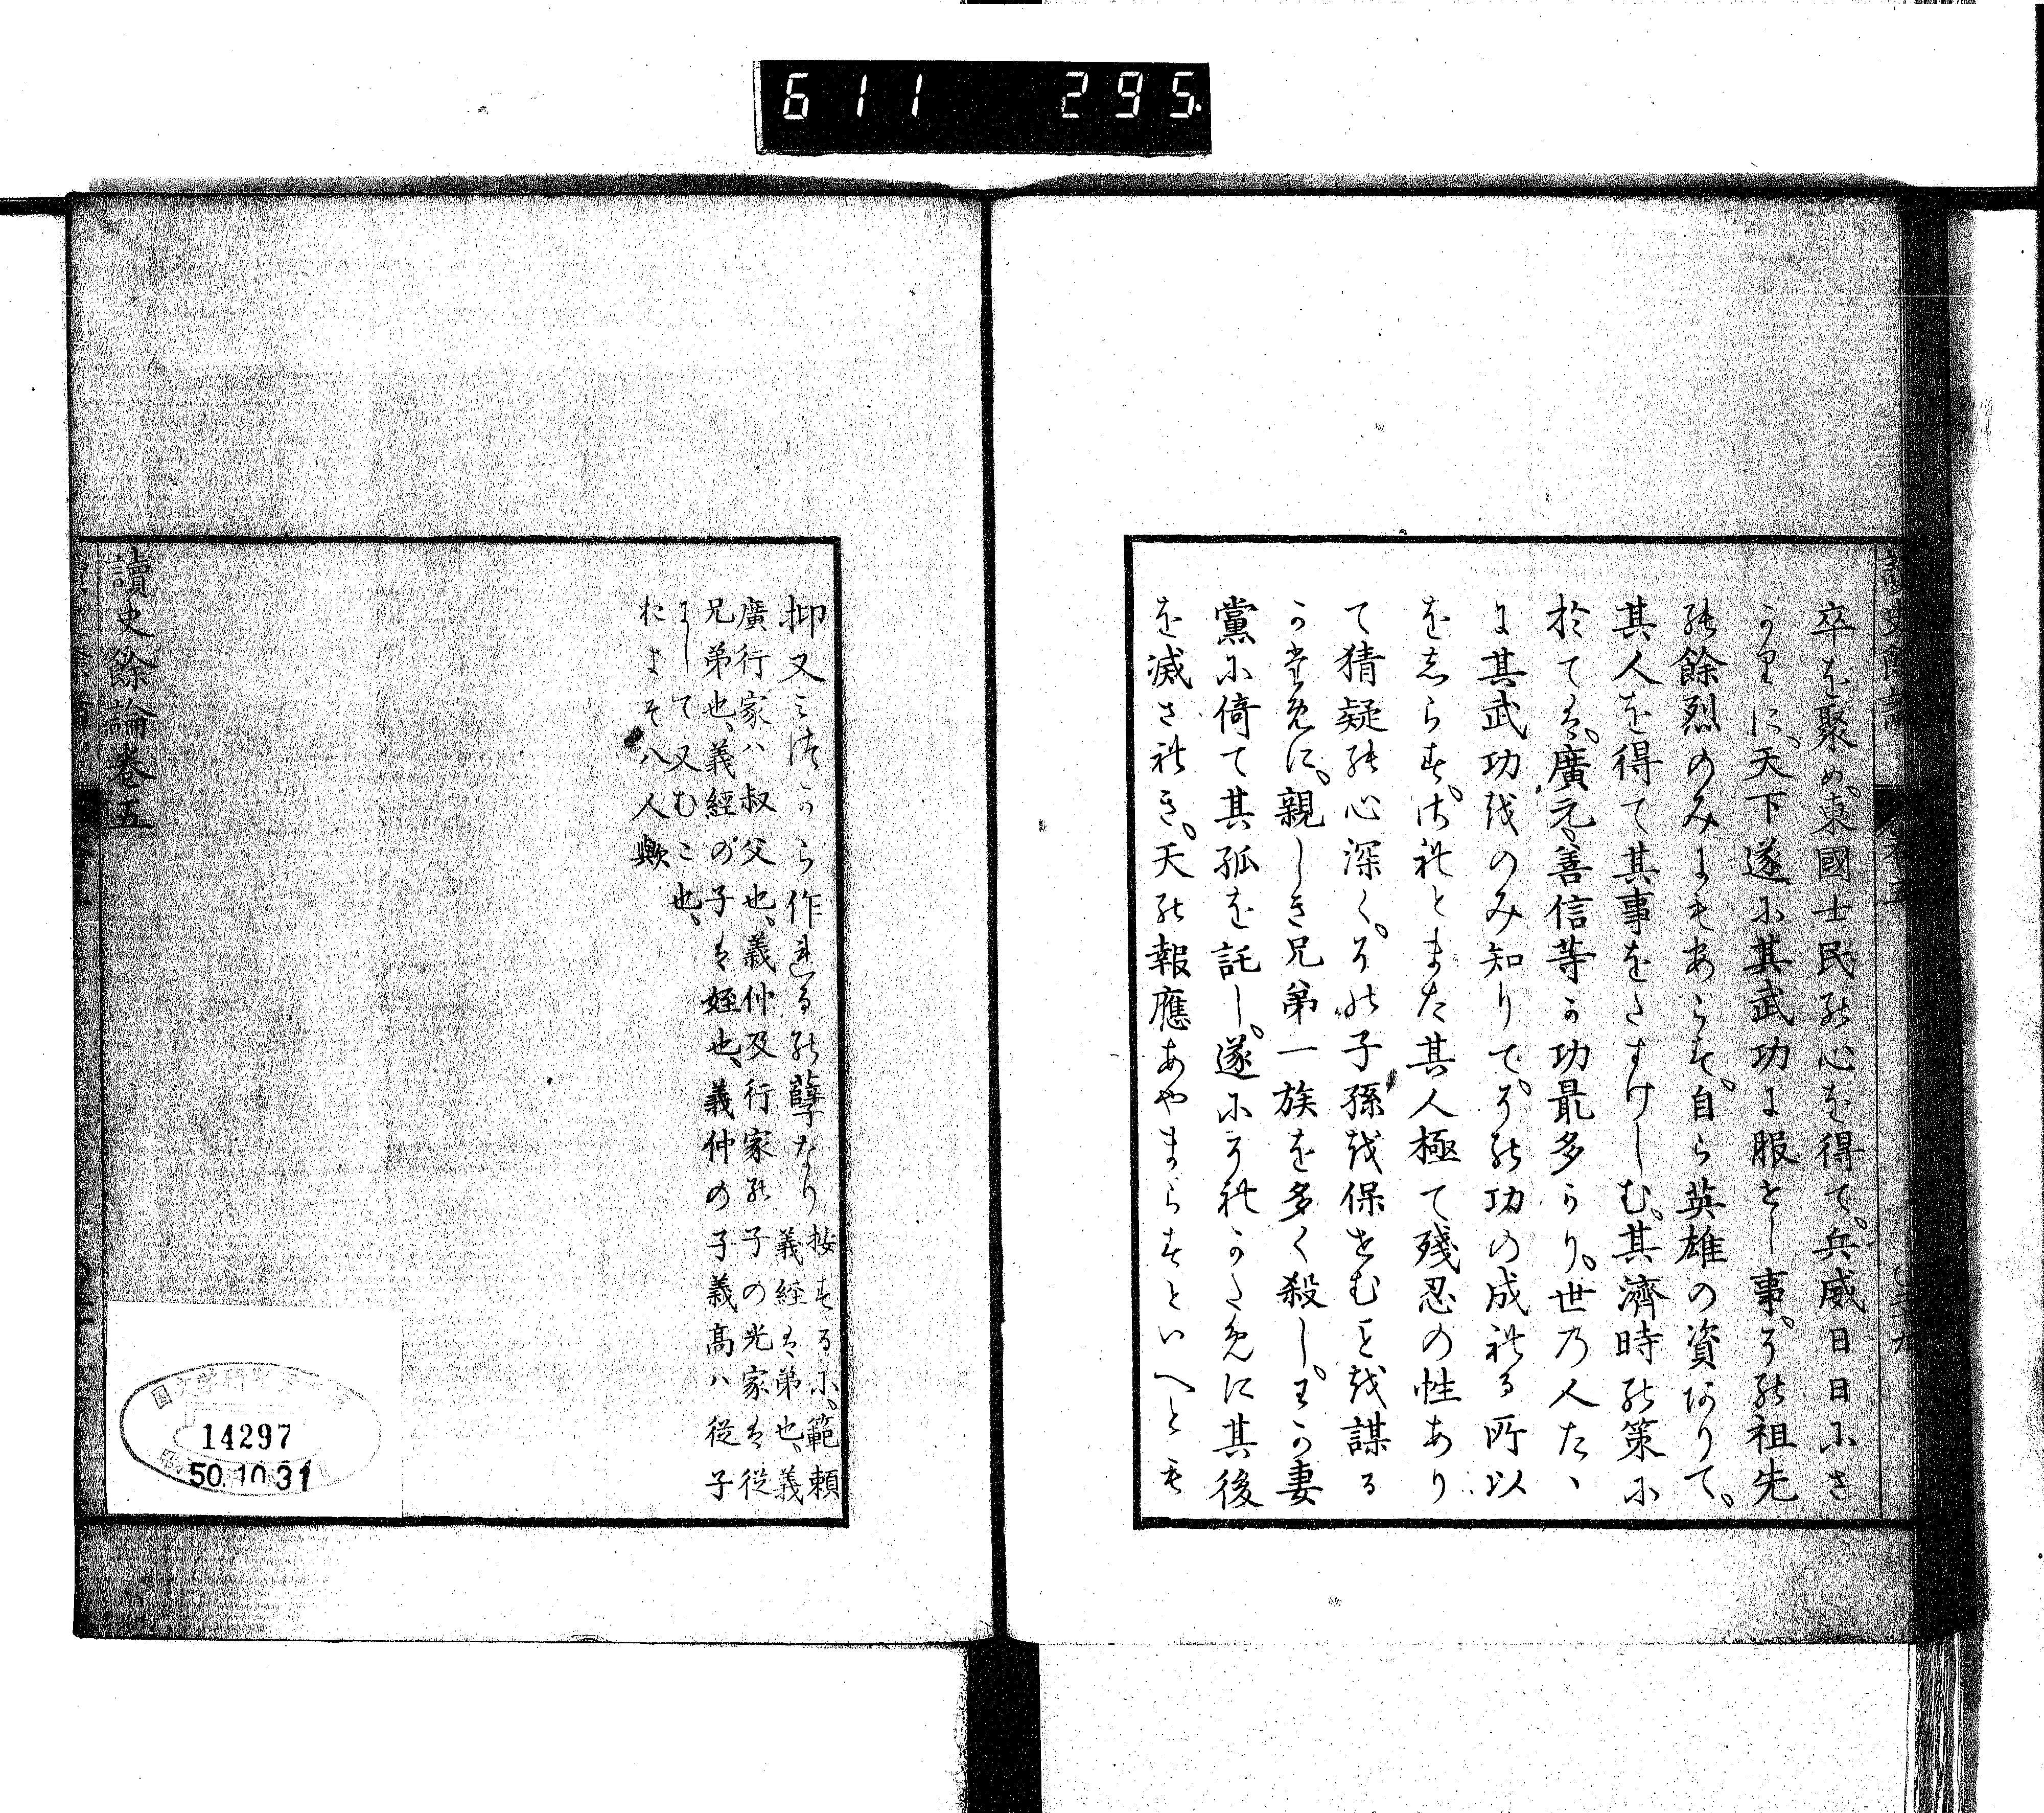 611 295
卒を聚め、東國士民の心を得て、兵威日日にさ
かりに、天下遂に其武功に服せし事、その祖先
の餘烈のみにもあらす、自ら英雄の資ありて、
其人を得て其事をたすけしむ、其濟時の策に
於ては、廣元、善信等か功最多かり、世の人たゝ
に其武功をのみ知りて、その功の成れる所以
をしらす、されとまた其人極て殘忍の性あり
て猜疑の心深く、その子孫を保せむとを謀る
かために、親しき兄弟一族を多く殺し、わか妻
黨に倚て其孤を託し、遂にそれかために其後
を滅されき、天の報應あやまらすといへとも
抑又みつから作れるの孽なり
按するに、範頼
義経は弟也、義
廣行家ハ叔父也、義仲及行家の子の光家は従
兄弟也、義經の子は姪也、義仲の子義高ハ従子
にして又むこ也、
およそ八人歟
讀史餘論卷五
14297
50.10.31